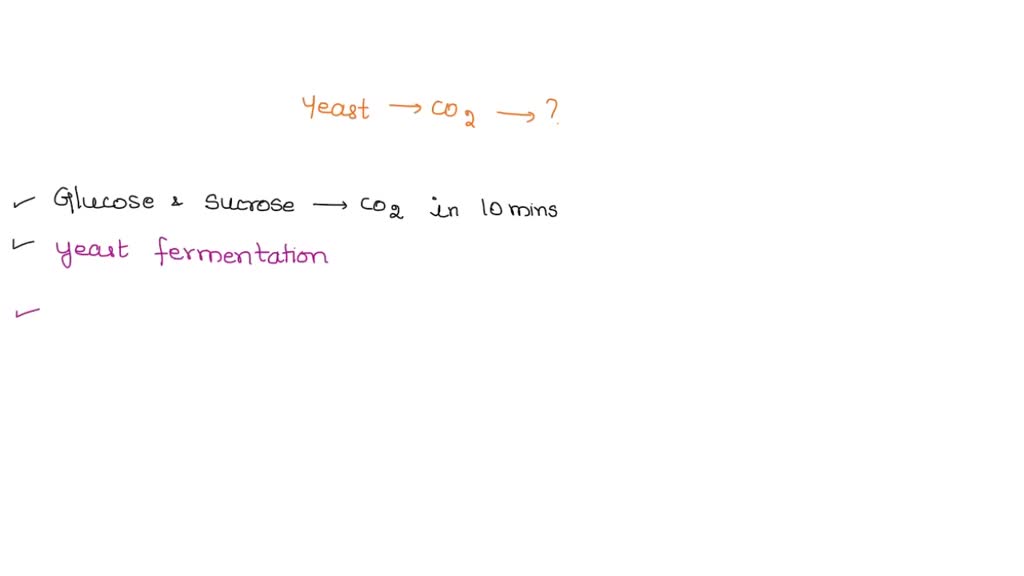 Yeast → CO2 → ?
✓ Glucose & sucrose → CO2 in 10 mins
✓ yeast fermentation
✓